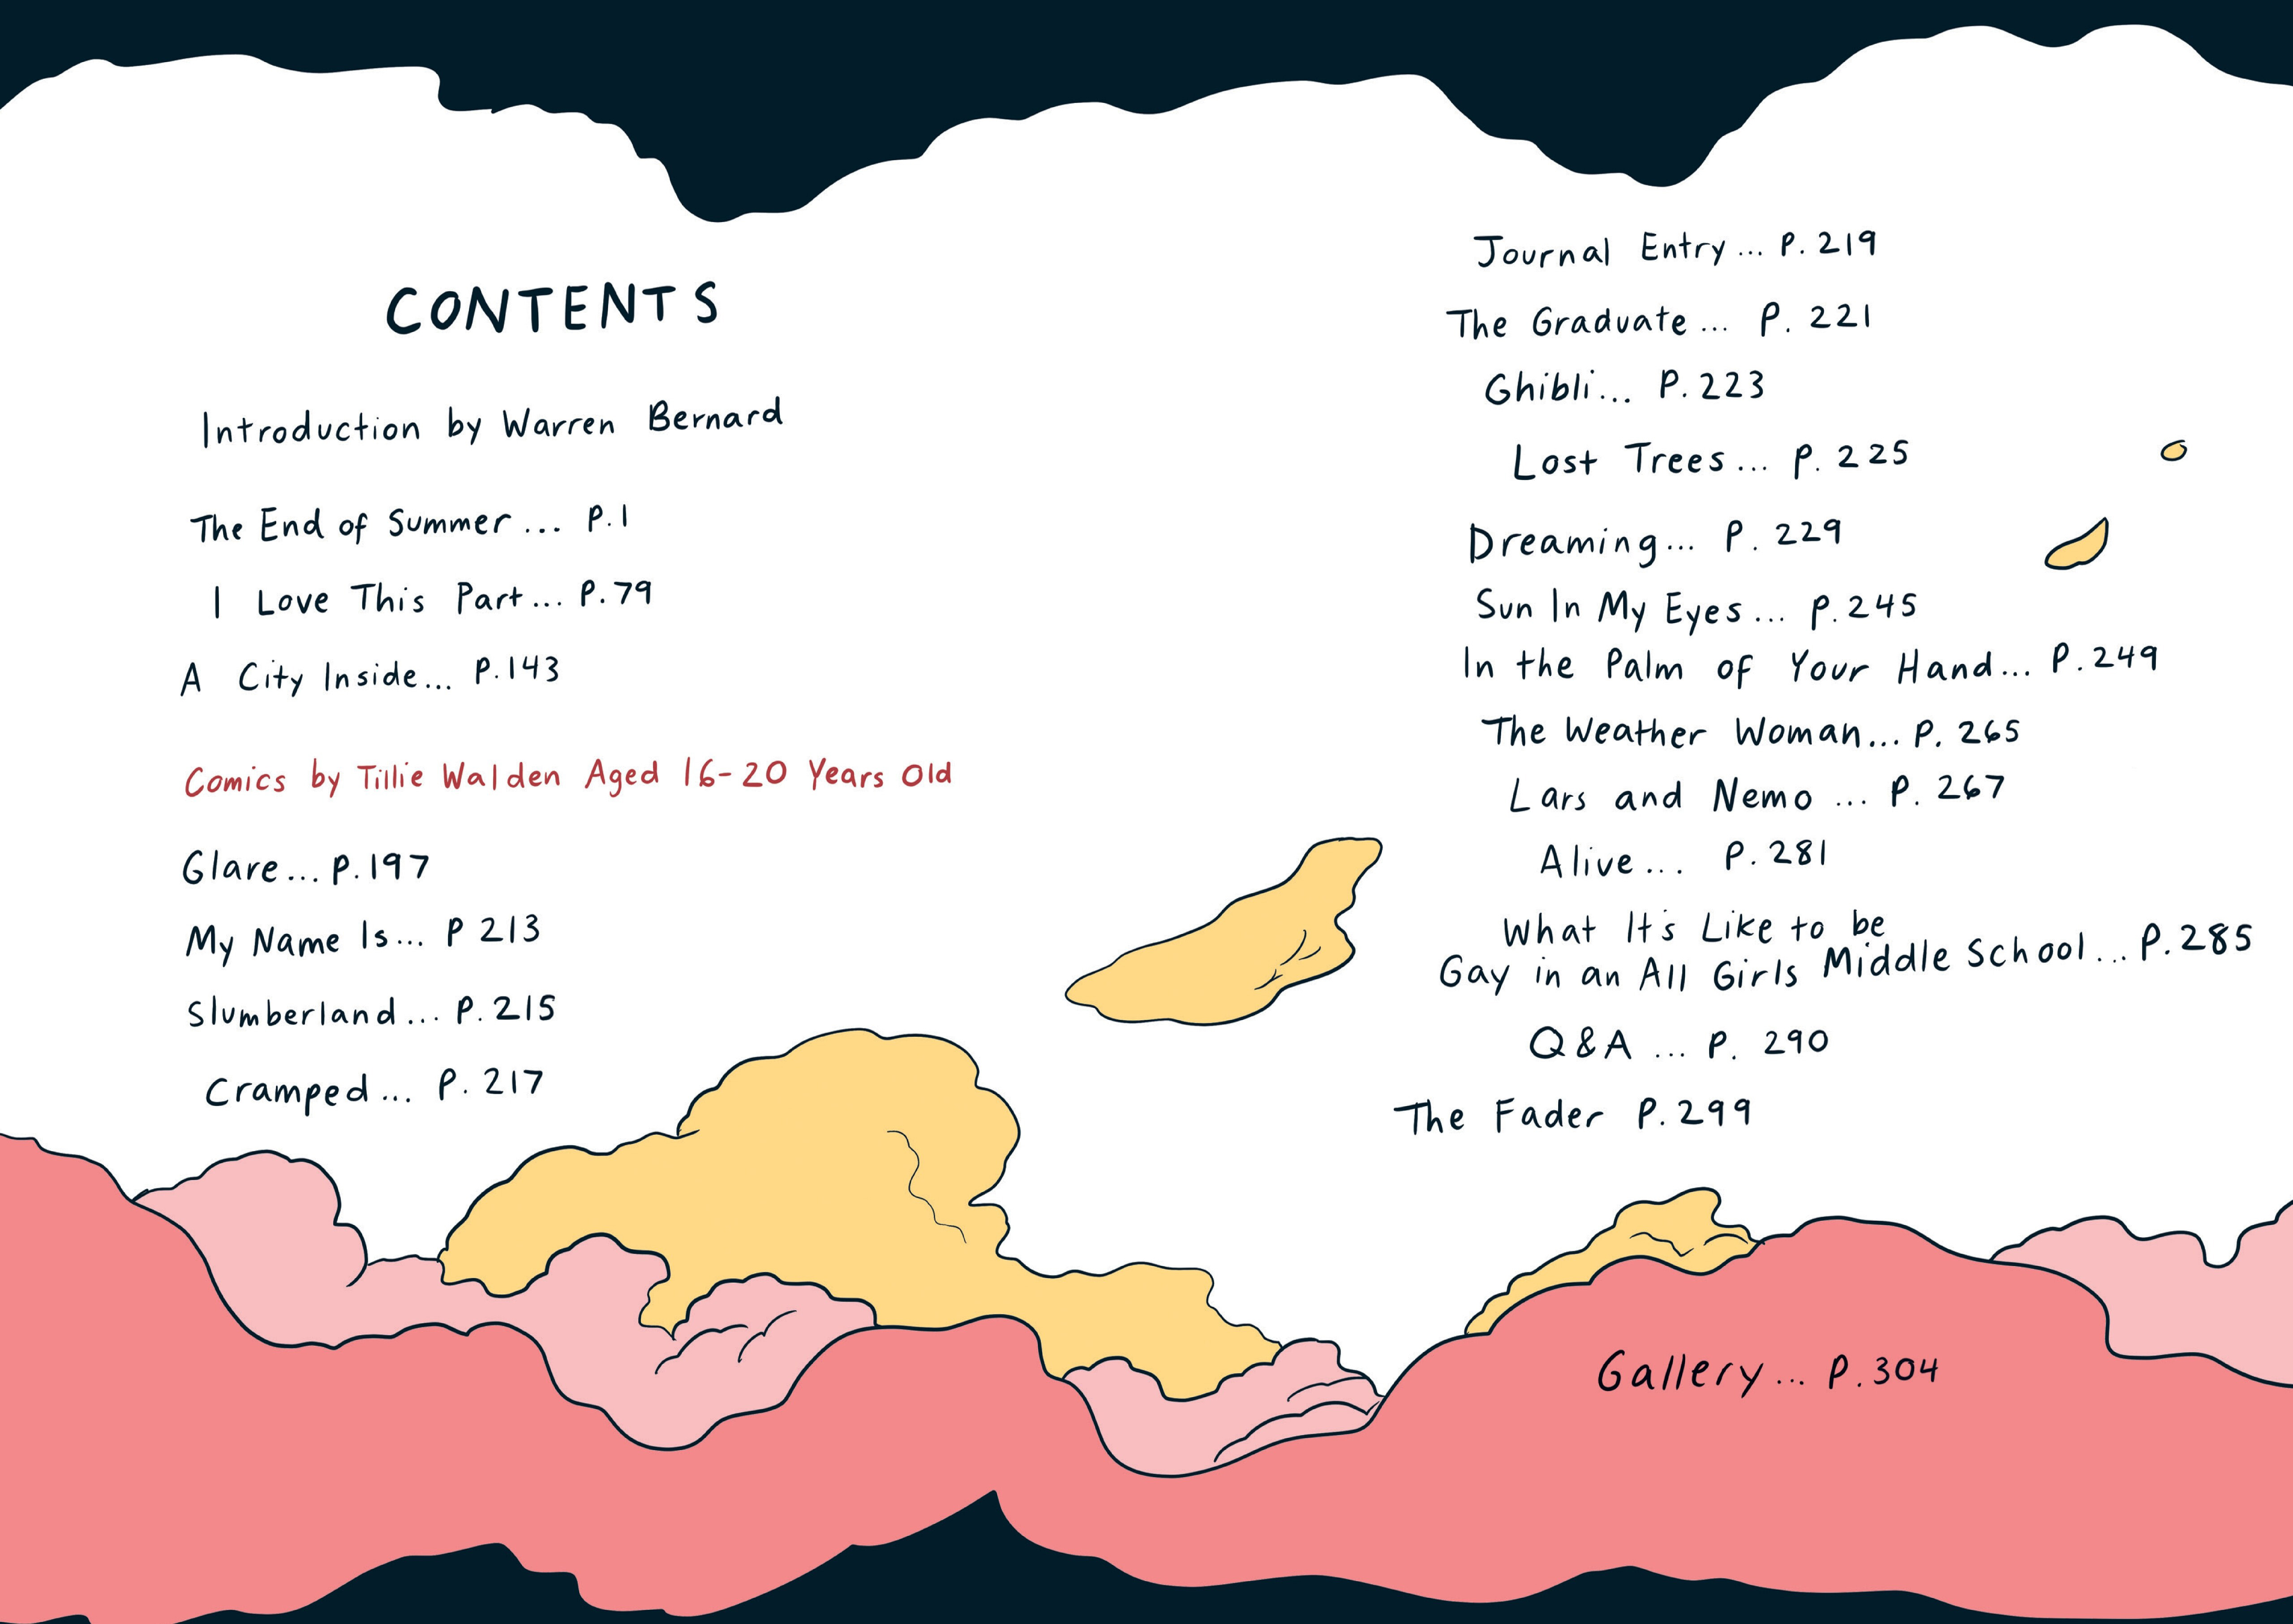 CONTENTS
Introduction by Warren Bernard
The End of Summer... P.1
I Love This Part... P.79
A City Inside... P.143
Comics by Tillie Walden Aged 16-20 Years Old
Glare... P.197
My Name Is... P 213
Slumberland... P.215
Cramped... P.217
Journal Entry... P.219
The Graduate... P.221
Ghibli... P.223
Lost Trees... P.225
Dreaming... P.229
Sun In My Eyes... P.245
In the Palm of Your Hand... P.249
The Weather Woman... P.265
Lars and Nemo... P.267
Alive... P.281
What It's Like to be
Gay in an All Girls Middle School... P.285
Q&A... P.290
The Fader P.299
Gallery... P.304